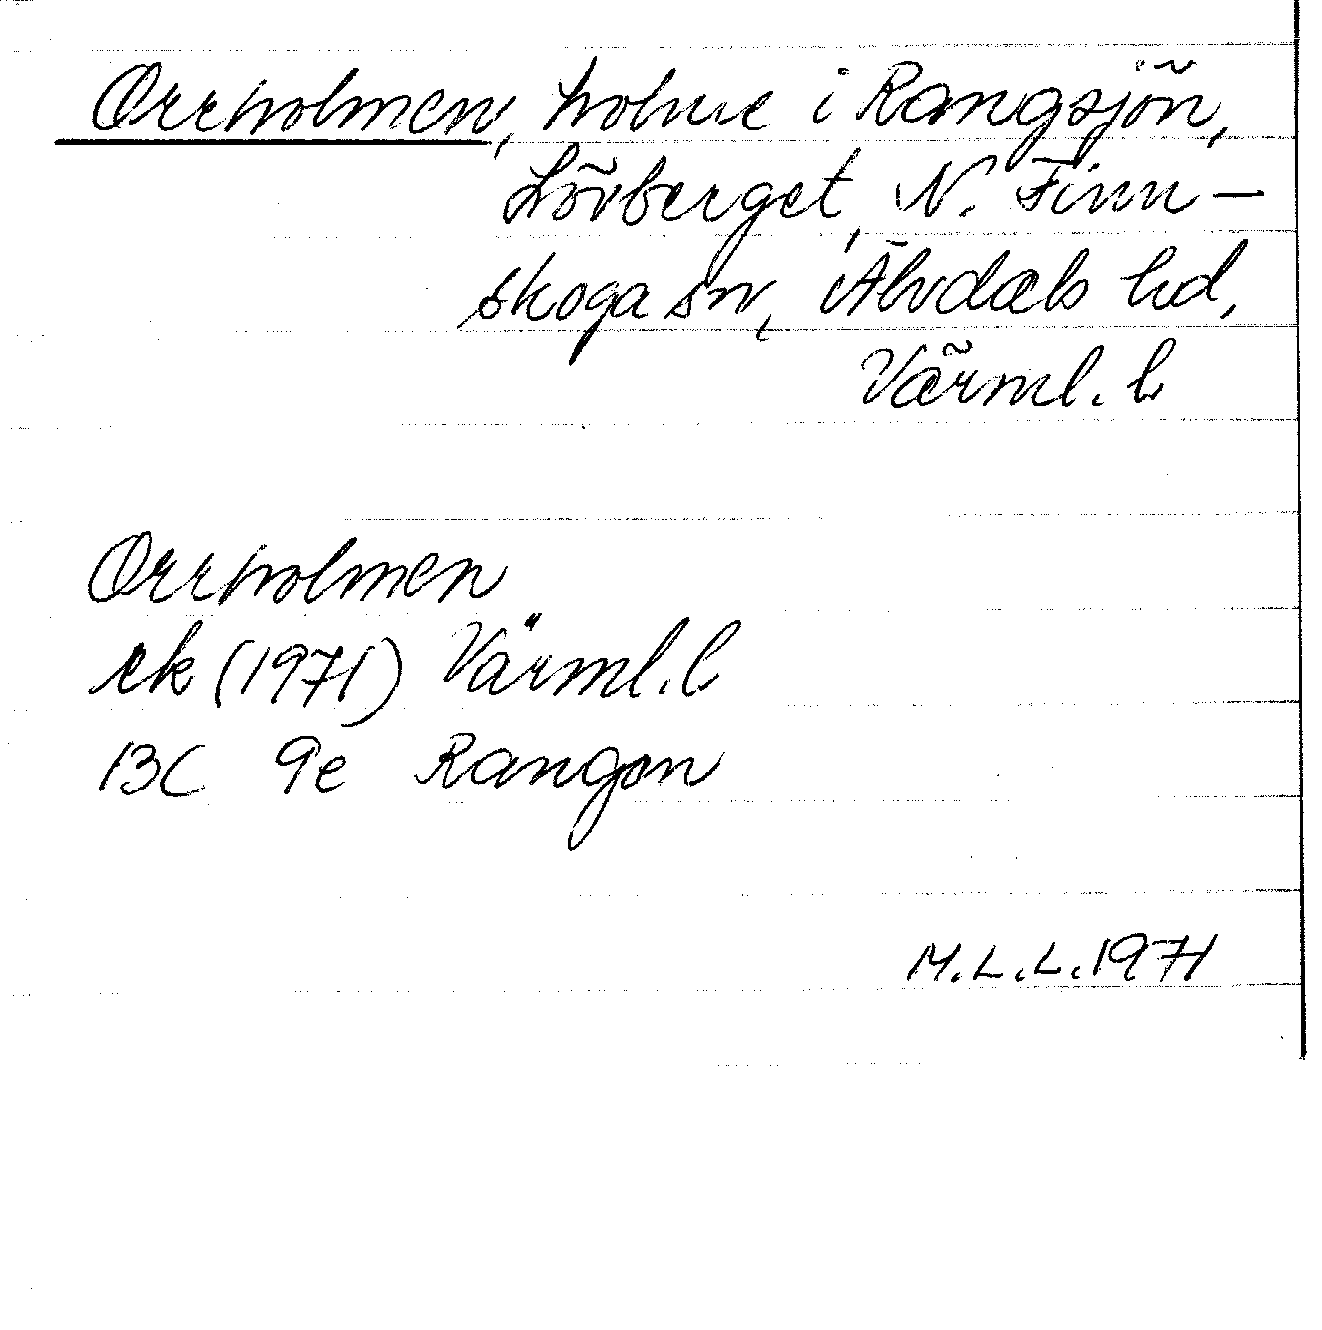 Orrholmen, holme i Rangsjön,
Lövberget, N. Finn-
skoga sn, Älvdals hd,
Värml. l.
Orrholmen
ek (1971) Värml. l.
13C 9e Rangen
M.L.L. 1971